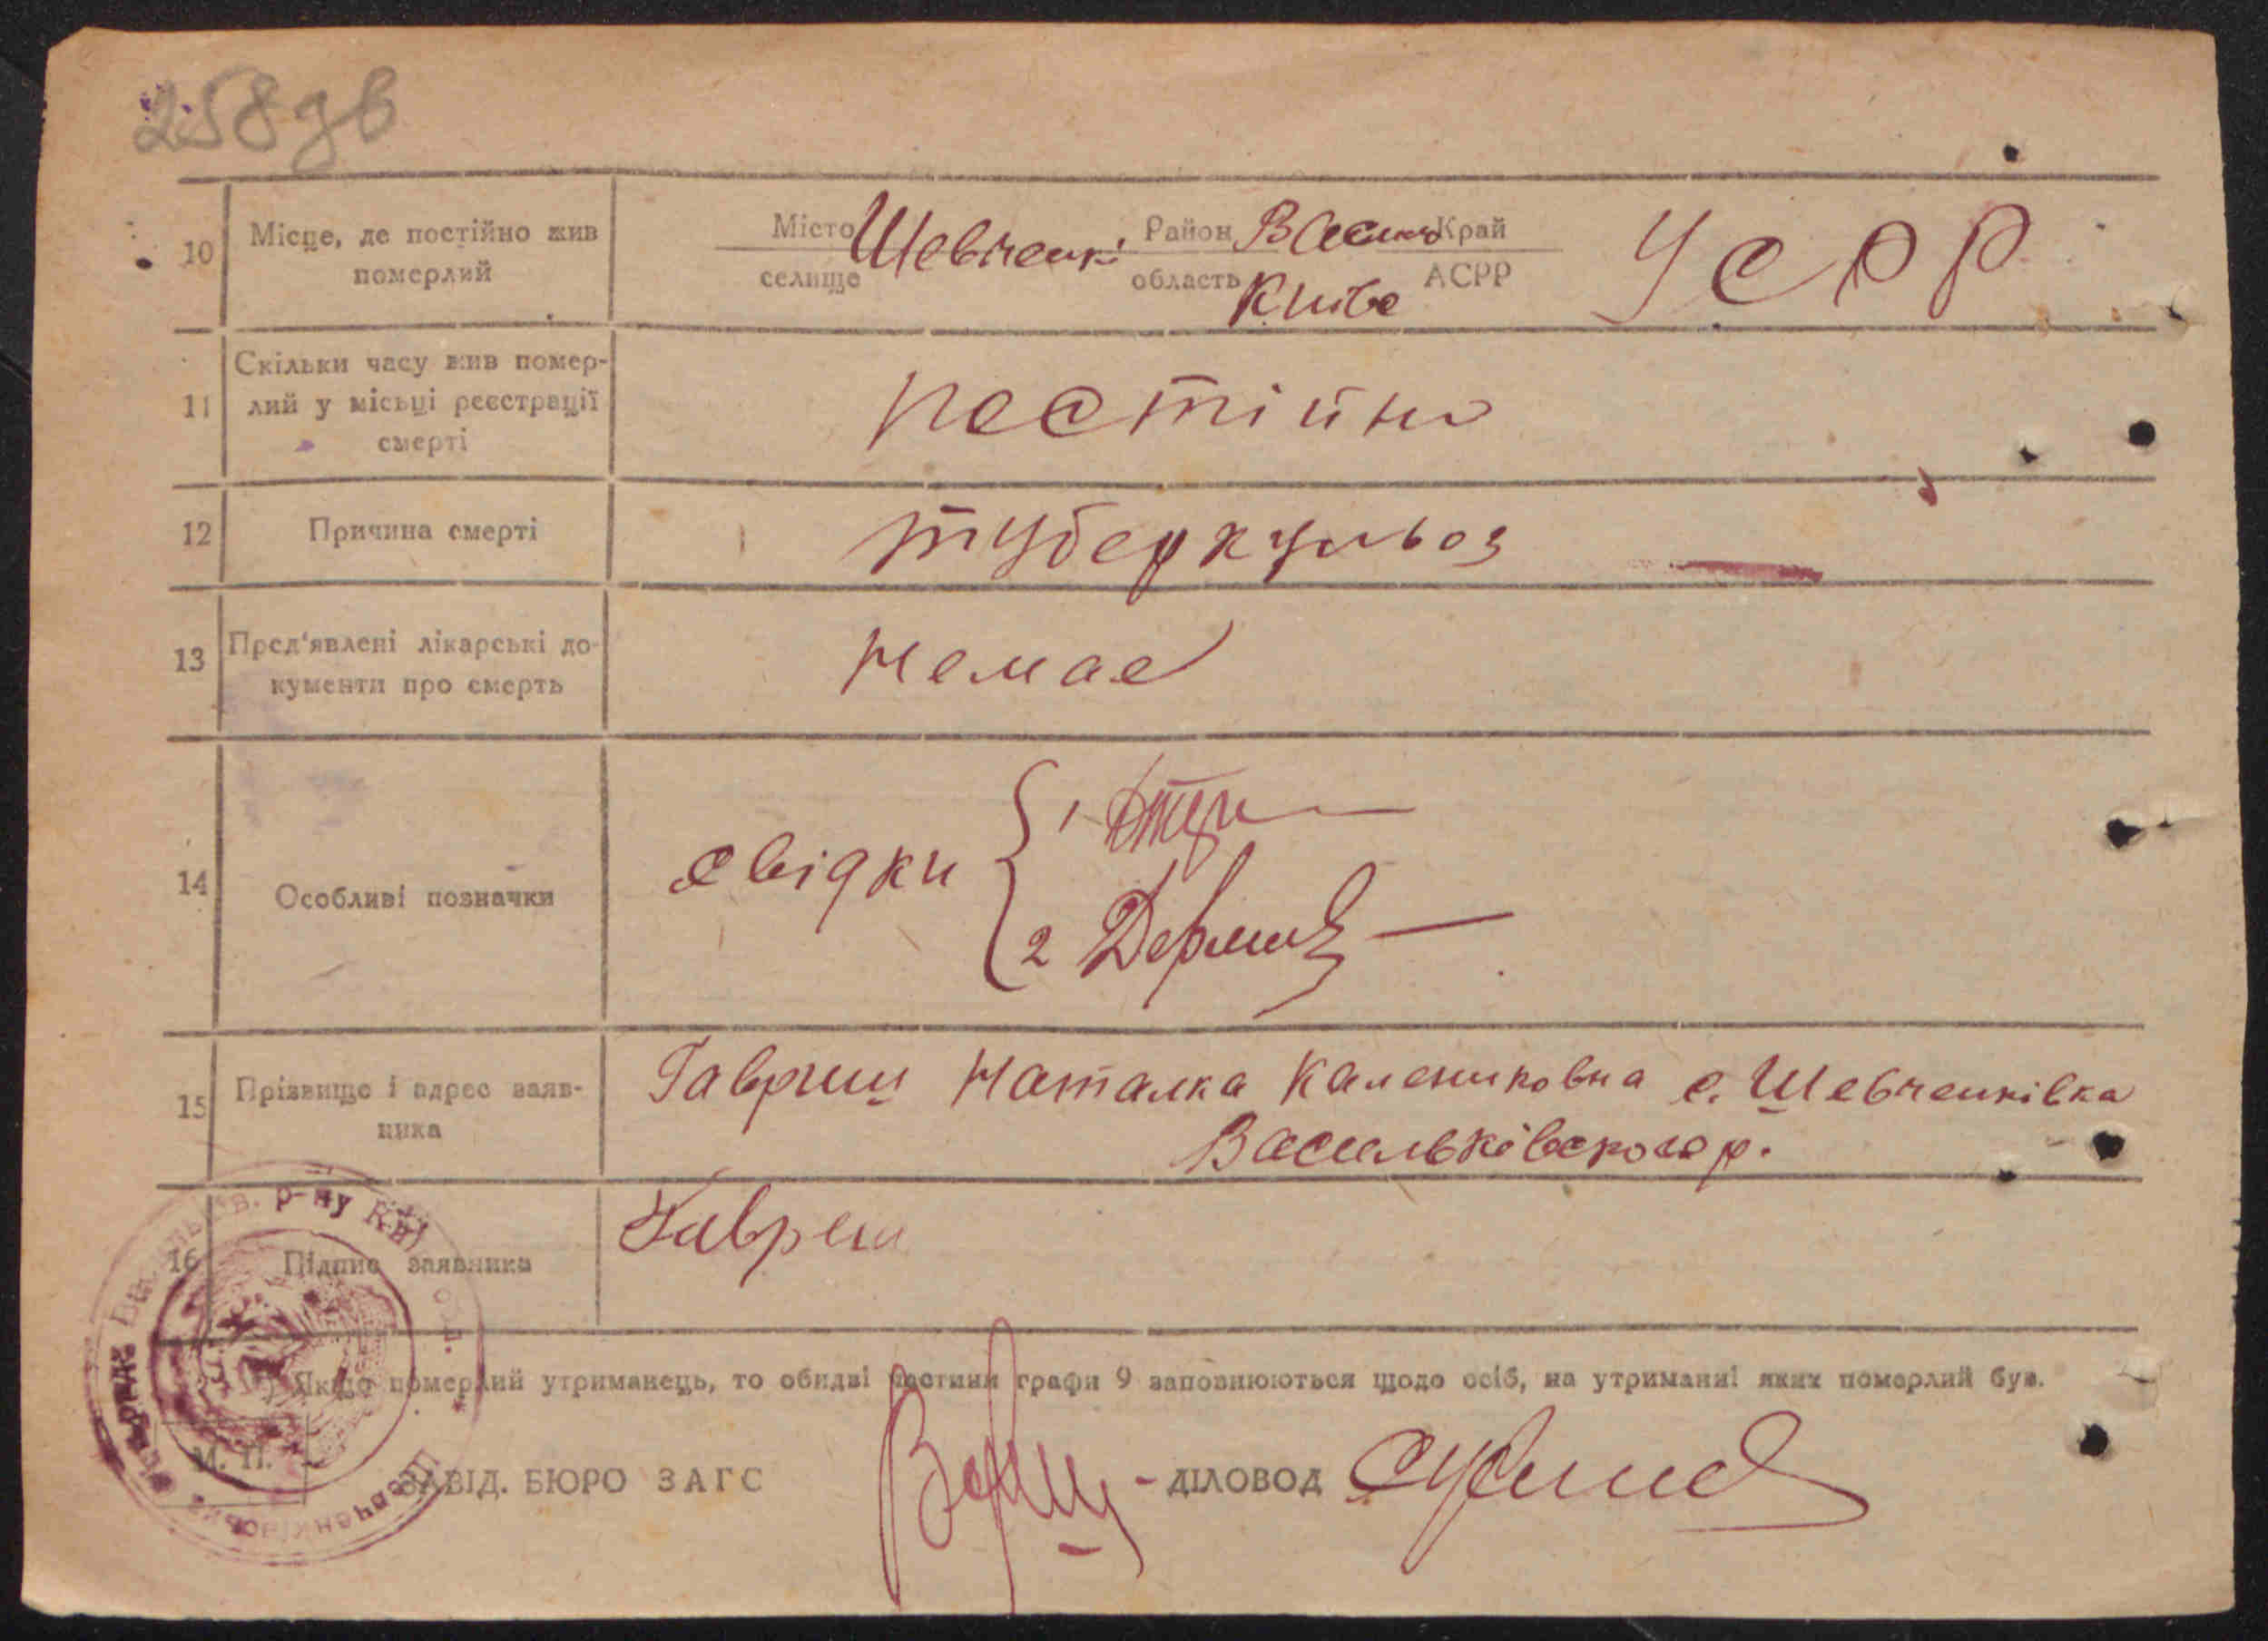 258 дв
10 Місце, де постійно жив померлий
Місто селище Шевченк. Район Васильк область Київс Край АСРР УСРР
11 Скільки часу жив помер-
лий у місьці реєстрації
смерті
постійно
12 Причина смерті туберкульоз
13 Пред'явлені лікарські до-
кументи про смерть
немае
14 Особливі позначки
свідки
1
2
15 Прізвище і адрес заяв-
ника
Гавриш Наталка Калениковна с. Шевченківка
Васильківского р.
16 Підпис заявника Гавриш
Якщо померлий утриманець, то обидві частини графи 9 заповнюються щодо осіб, на утриманні яких померлий був.
М. П.
ЗАВІД. БЮРО ЗАГС
ДІЛОВОД
в. р-ну Київ обл.
Шевченківська